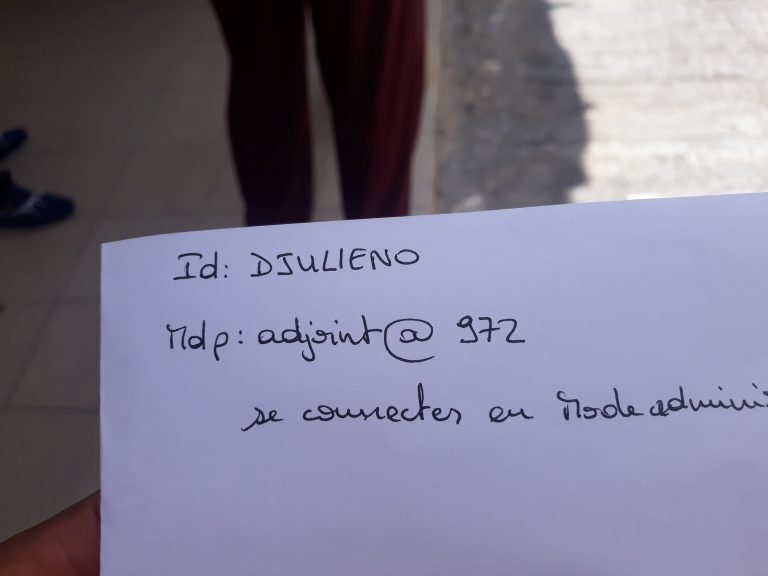 Id: DJULIENO
Mdp: adjoint@ 972
se connecter en Mode adminis